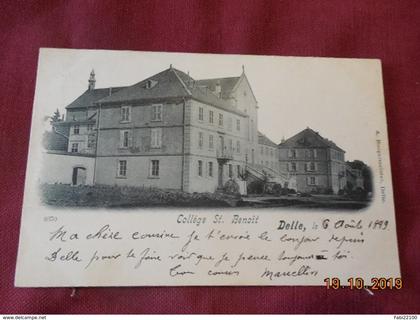 A. Bouquenoinez, Delle.
Collège St. Benoit Delle, le 6 Août 1899
Ma chère cousine je t'envoie le bonjour depuis
Delle pour te faire voir que je pense toujours à toi.
Ton cousin Marcellin
19.10.2019
fabi22100 delcampe.net